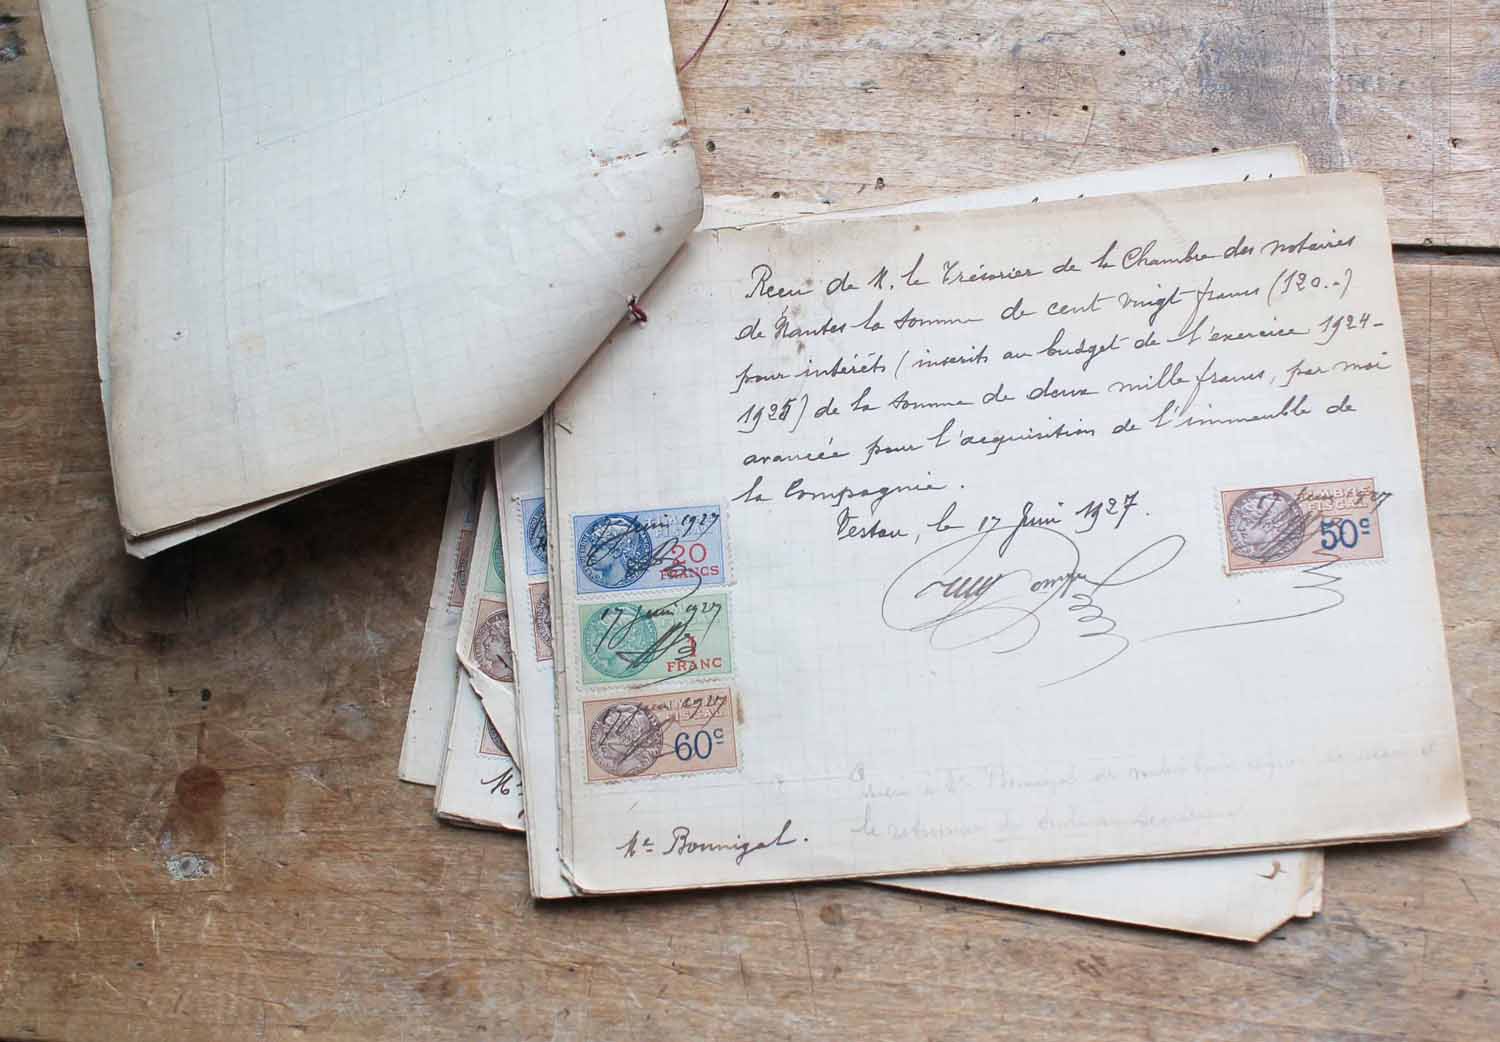 Reçu de M. le Trésorier de la Chambre des notaires
de Nantes la somme de cent vingt francs (120..)
pour intérêts (inscrits au budget de l'exercice 1924-
1925) de la somme de deux mille francs, par moi
avancée pour l'acquisition de l'immeuble de
la Compagnie.
le 17 Juin 1927.
17 Juin 1927
50c
Juin 1927
20
FRANCS
17 Juin 1927
1
FRANC
17 Juin 1927
60c
Me Bonnigal.